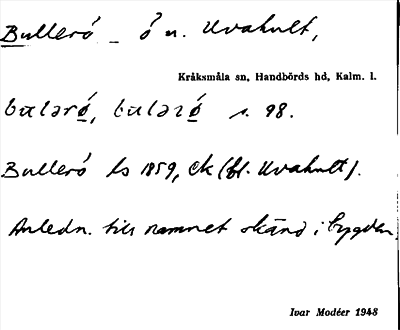 Bullerö – ö n. Uvahult,
Kråksmåla sn, Handbörds hd, Kalm. l.
bɯlərö́, bɯlərö́ s. 98.
Bullerö ls 1859, Ek (fl. Uvahult).
Anledn. till namnet okänd i bygden.
Ivar Modéer 1948